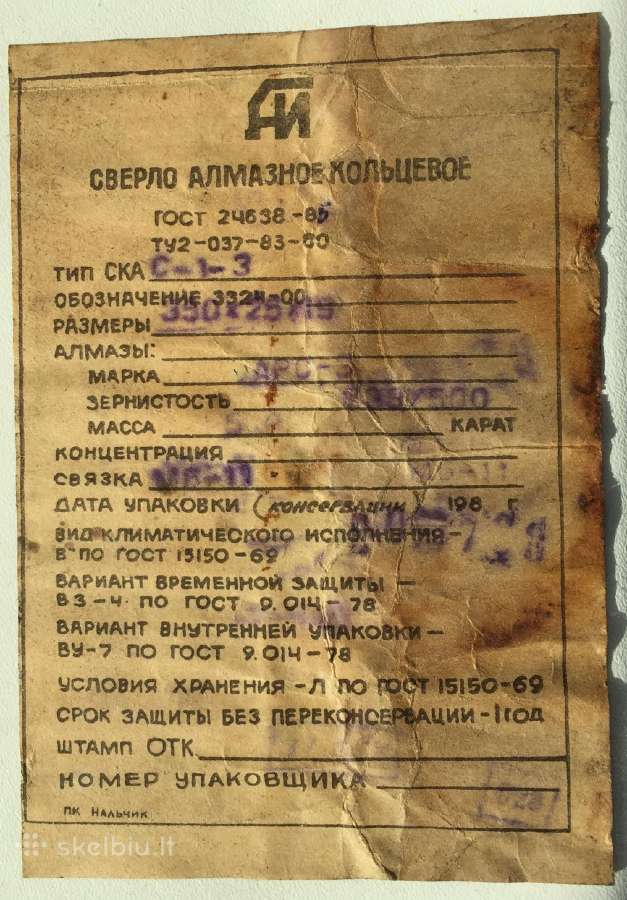 АИ
СВЕРЛО АЛМАЗНОЕ КОЛЬЦЕВОЕ
ГОСТ 24638-85
ТУ2-037-83-80
ТИП СКА С-1-3
ОБОЗНАЧЕНИЕ 3324-00
РАЗМЕРЫ
АЛМАЗЫ:
МАРКА
ЗЕРНИСТОСТЬ
МАССА КАРАТ
КОНЦЕНТРАЦИЯ
СВЯЗКА
ДАТА УПАКОВКИ (КОНСЕРВАЦИИ) 198 Г.
ВИД КЛИМАТИЧЕСКОГО ИСПОЛНЕНИЯ-
В ПО ГОСТ 15150-69
ВАРИАНТ ВРЕМЕННОЙ ЗАЩИТЫ —
ВЗ-4 ПО ГОСТ 9.014-78
ВАРИАНТ ВНУТРЕННЕЙ УПАКОВКИ —
ВУ-7 ПО ГОСТ 9.014-78
УСЛОВИЯ ХРАНЕНИЯ -Л ПО ГОСТ 15150-69
СРОК ЗАЩИТЫ БЕЗ ПЕРЕКОНСЕРВАЦИИ-1 ГОД
ШТАМП ОТК
НОМЕР УПАКОВЩИКА
ПК НАЛЬЧИК
skelbiu.lt